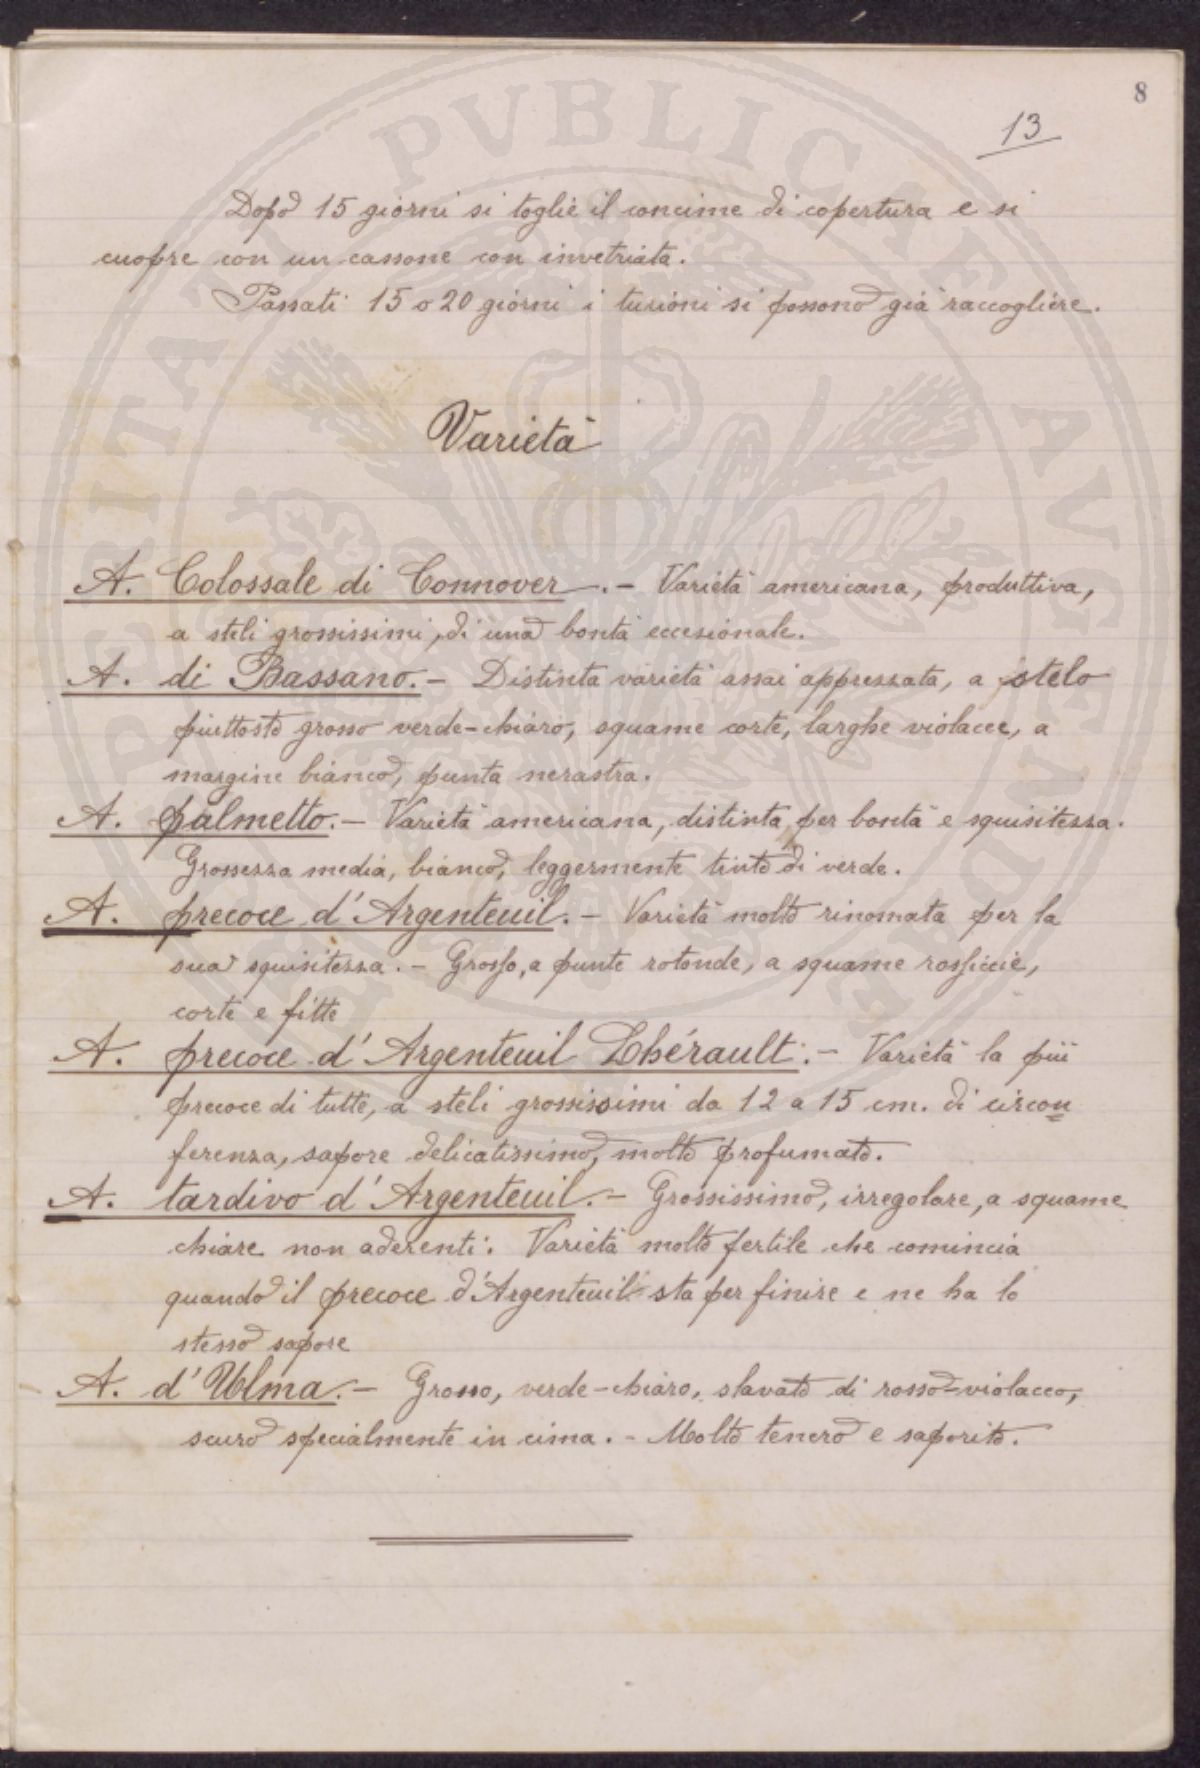 8
13
Dopo 15 giorni si toglie il concime di copertura e si
cuopre con un cassone con invetriata.
Passati 15 o 20 giorni i turioni si possono già raccogliere.
Varietà
A. Colossale di Connover. - Varietà americana, produttiva,
a steli grossissimi, di una bontà eccezionale.
A. di Bassano. - Distinta varietà assai apprezzata, a stelo
piuttosto grosso verde-chiaro, squame corte, larghe violacee, a
margine bianco, punta nerastra.
A. palmetto. - Varietà americana, distinta per bontà e squisitezza.
Grossezza media, bianco, leggermente tinto di verde.
A. precoce d'Argenteuil. - Varietà molto rinomata per la
sua squisitezza. - Grosso, a punte rotonde, a squame rossiccie,
corte e fitte
A. precoce d'Argenteuil Lhérault. - Varietà la più
precoce di tutte, a steli grossissimi da 12 a 15 cm. di circon
ferenza, sapore delicatissimo, molto profumato.
A. tardivo d'Argenteuil. - Grossissimo, irregolare, a squame
chiare non aderenti. Varietà molto fertile che comincia
quando il precoce d'Argenteuil sta per finire e ne ha lo
stesso sapore
A. d'Ulma. - Grosso, verde-chiaro, slavato di rosso-violaceo,
scuro specialmente in cima. - Molto tenero e saporito.
PVBLICAE AVGENDAE